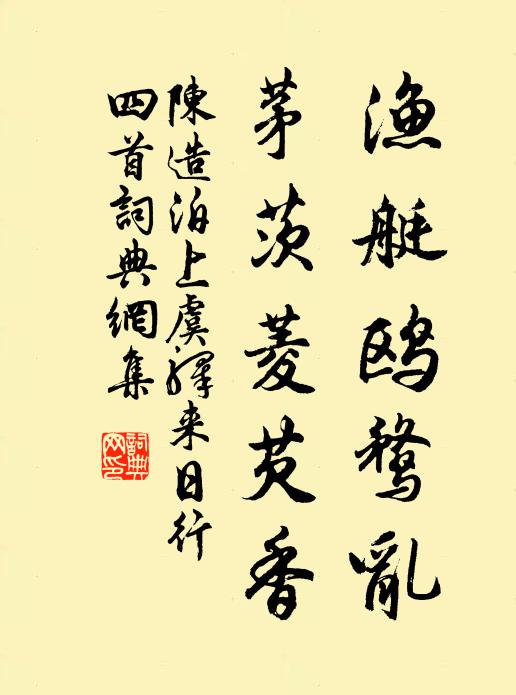 漁艇鸥鶩亂
茅茨菱芡香
陳造泊上虞驛来日行
四首詞典網集
詞典网印